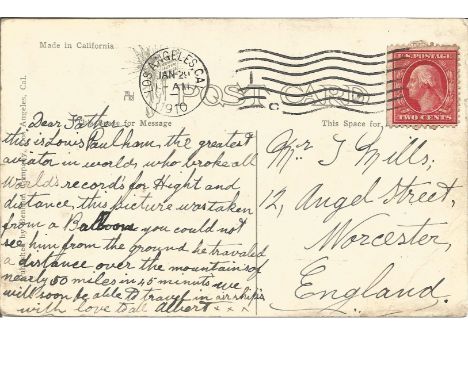 Made in California
LOS ANGELES, CAL.
JAN 20
AM
1910
POST CARD
TWO CENTS
Space for Message
This Space for
Los Angeles, Cal.
Dear Father
this is Lows Paulham, the greatest
aviator in world, who broke all
World's records for Hight and
distance, this picture was taken
from a Balloon you could not
see him from the ground he traveled
a distance over the mountains of
nearly 50 miles in 45 minuts we
will soon be able to travel in airships
with love to all Albert x x x
Mr J Mills,
12, Angel Street,
Worcester,
England.